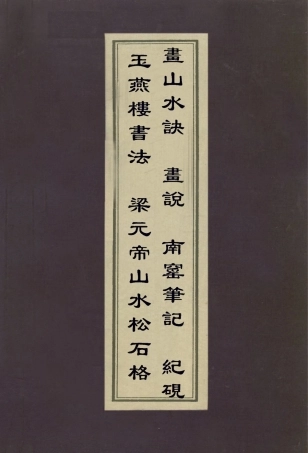 畫山水訣　畫說　南窰筆記　紀硯
玉燕樓書法　梁元帝山水松石格